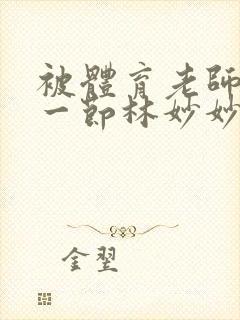 被體育老師
一節林妙妙
金翌